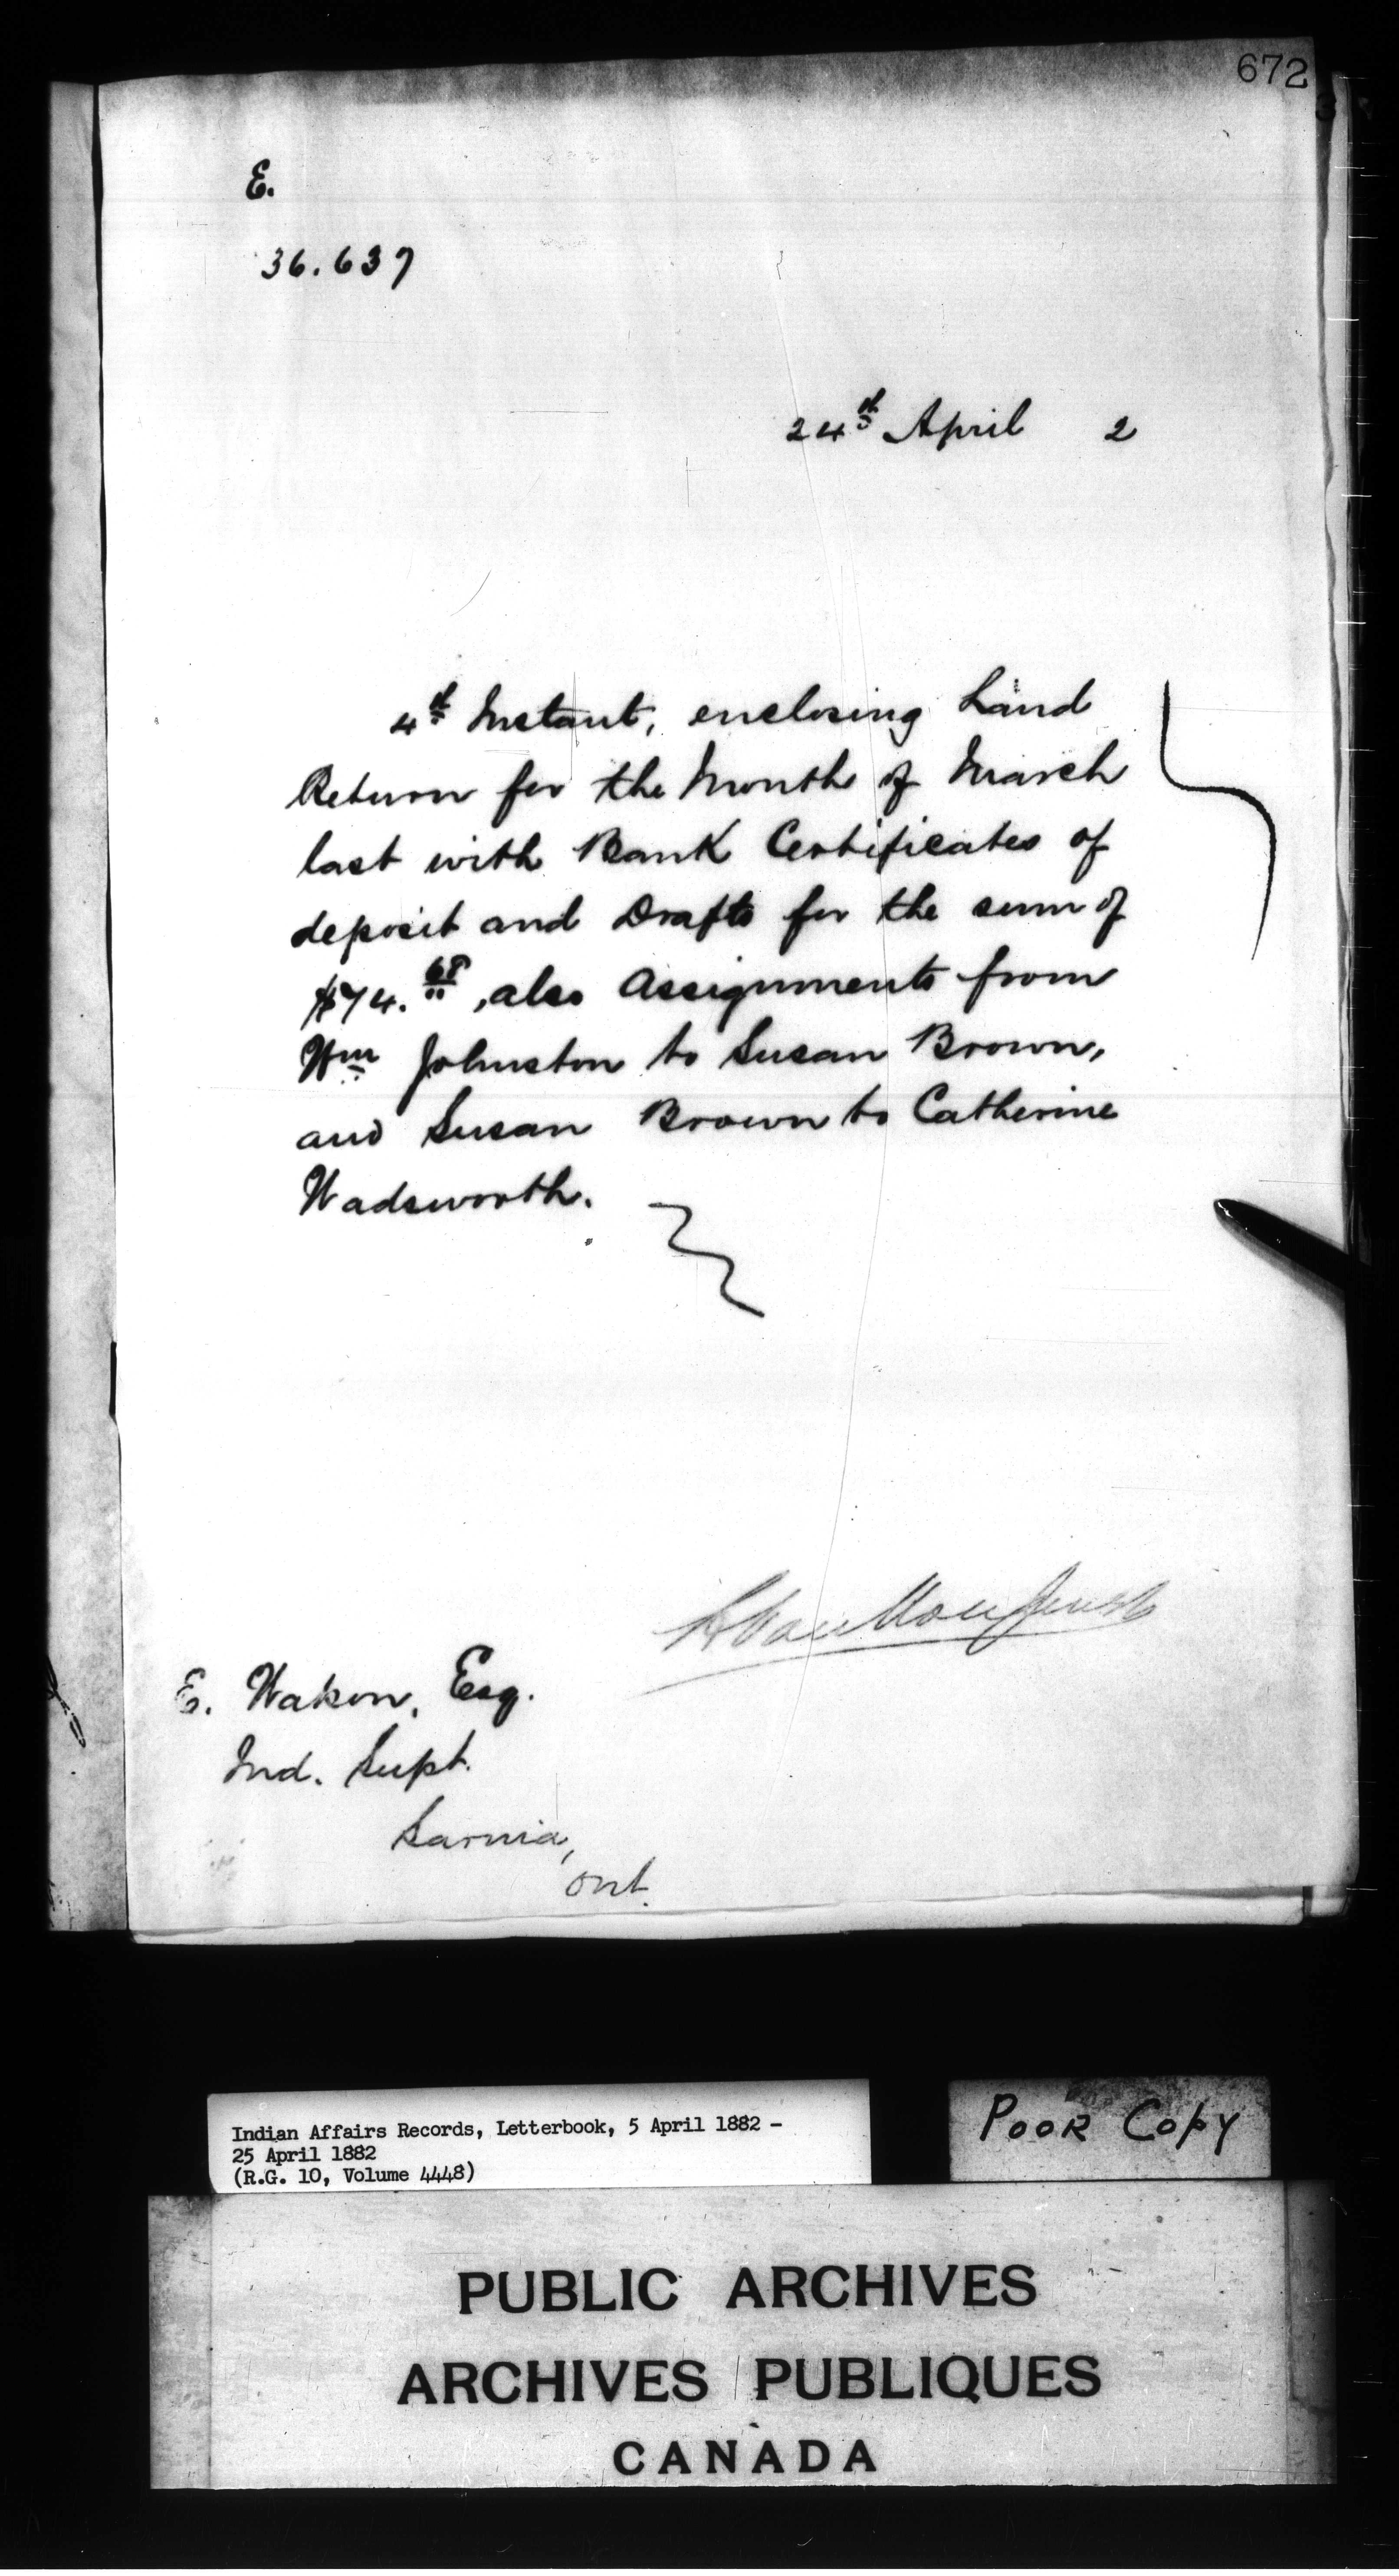 672
E.
36.637
24th April 2
4th Instant, enclosing Land
Return for the Month of March
last with Bank Certificates of
deposit and Drafts for the sum of
$74.68, also Assignments from
Wm Johnston to Susan Brown,
and Susan Brown to Catherine
Wadsworth.
E. Watson, Esq.
Ind. Supt.
Sarnia,
Ont.
Indian Affairs Records, Letterbook, 5 April 1882 -
25 April 1882
(R.G. 10, Volume 4448)
POOR COPY
PUBLIC ARCHIVES
ARCHIVES PUBLIQUES
CANADA